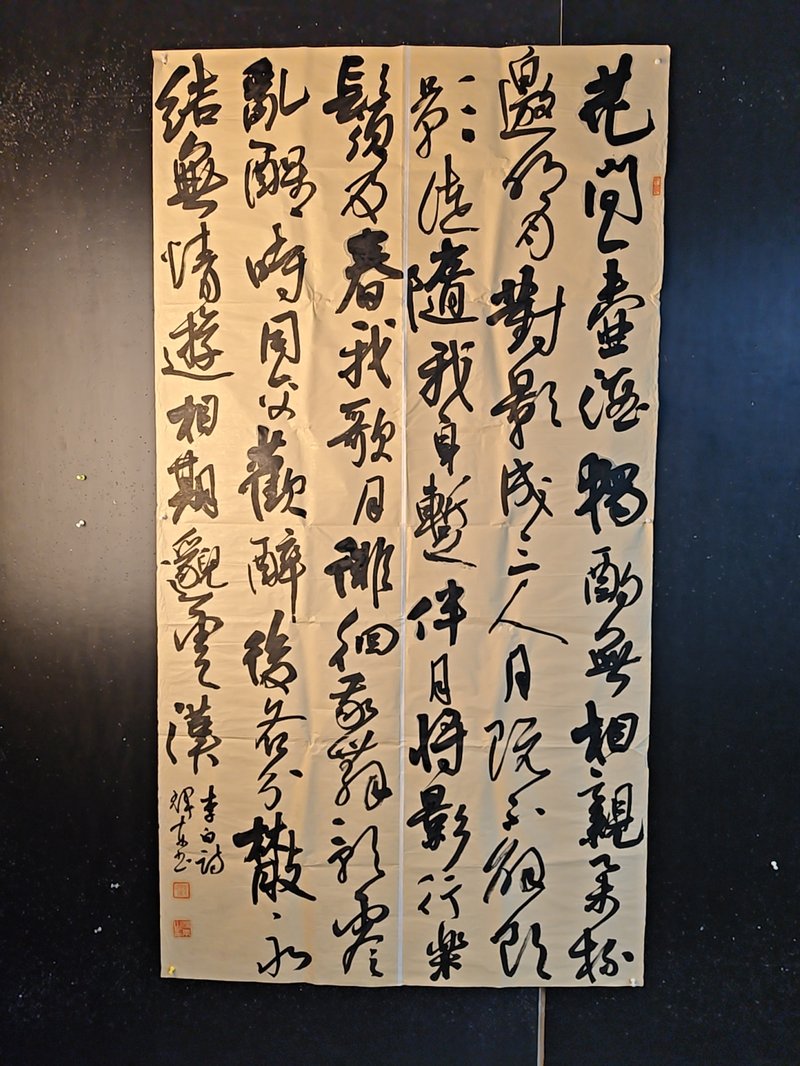 花間一壺酒獨酌無相親舉杯
邀明月對影成三人月既不解飲
影徒隨我身暫伴月將影行樂
鬚及春我歌月徘徊我舞影零
亂醒時同交歡醉後各分散永
結無情遊相期邈雲漢
李白詩